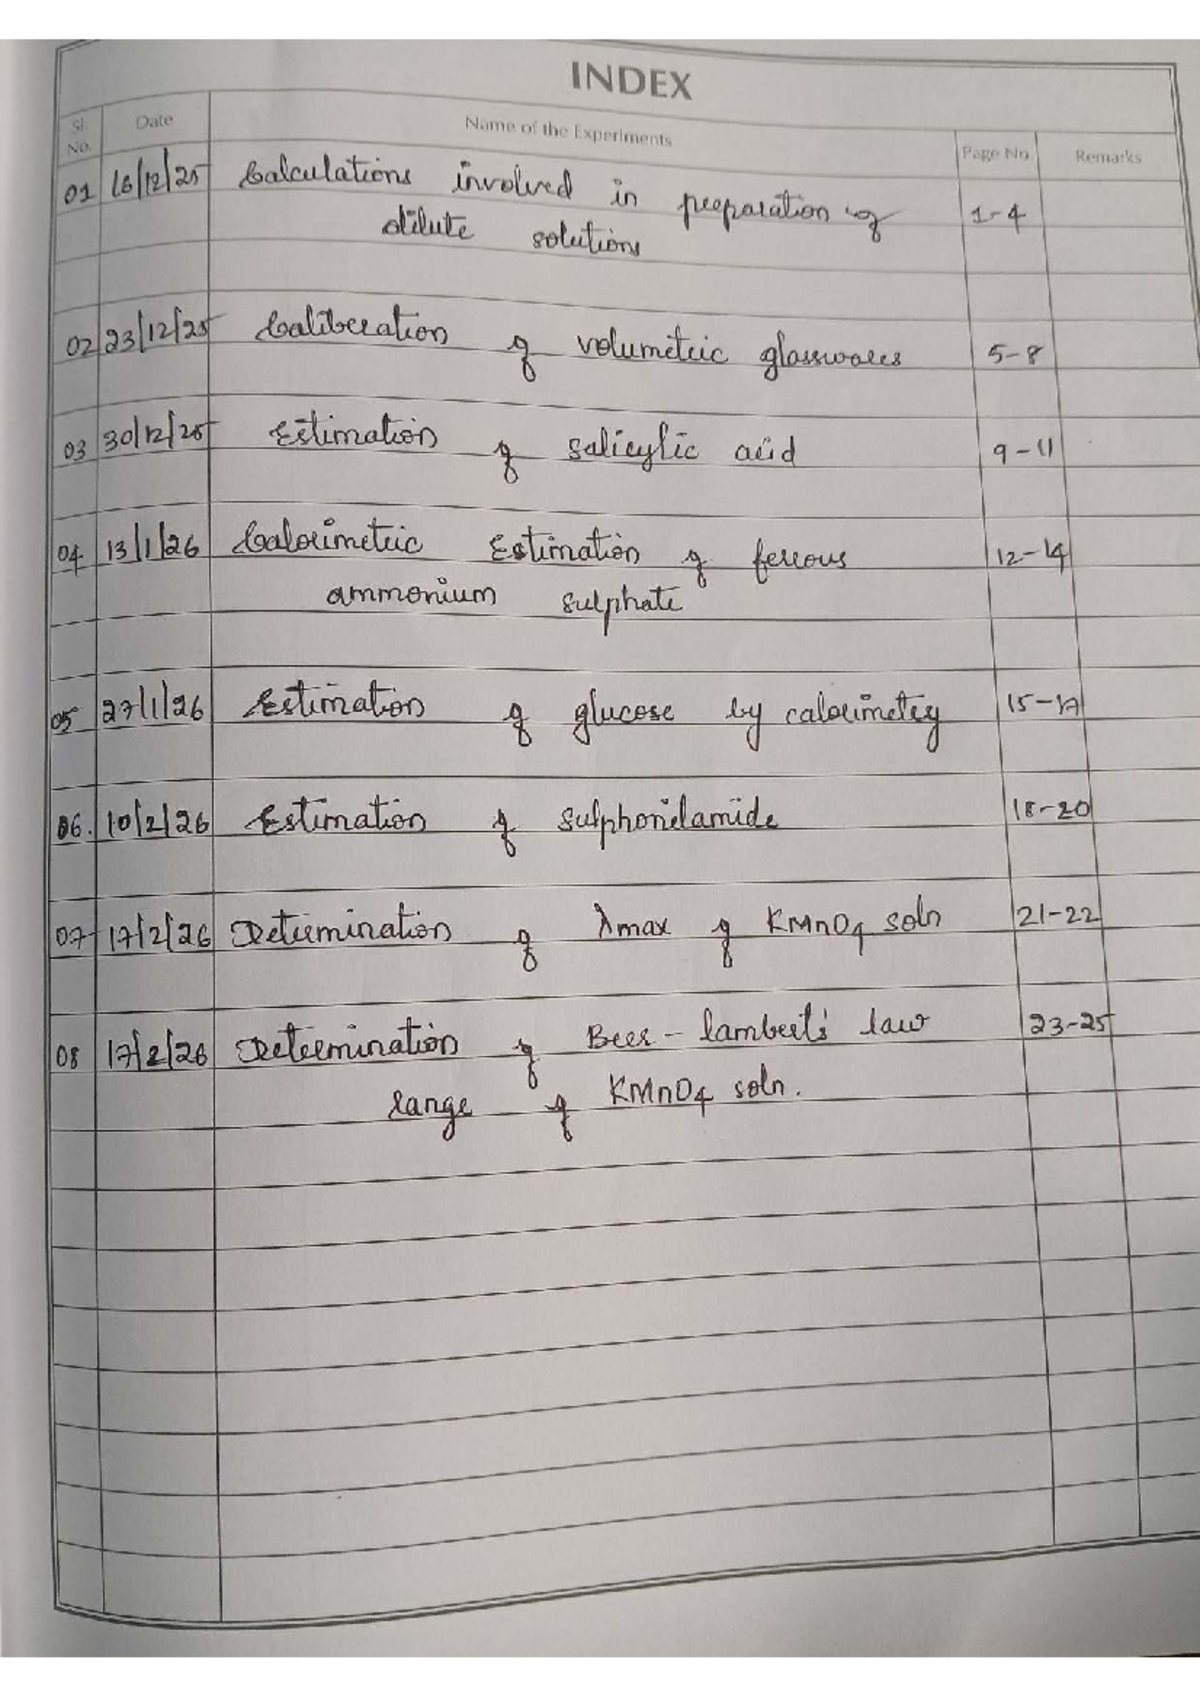 INDEX
Sl. No. Date Name of the Experiments Page No. Remarks
01 16/12/25 Calculations involved in preparation of 1-4
dilute solutions
02 23/12/25 Caliberation of volumetric glasswares 5-8
03 30/12/25 Estimation of salicylic acid 9-11
04 13/1/26 Calorimetric Estimation of ferrous 12-14
ammonium sulphate
05 27/1/26 Estimation of glucose by calorimetry 15-17
06. 10/2/26 Estimation of sulphonilamide 18-20
07 17/2/26 Determination of λmax of KMnO4 soln 21-22
08 17/2/26 Determination of Beer-lambert's law 23-25
range of KMnO4 soln.